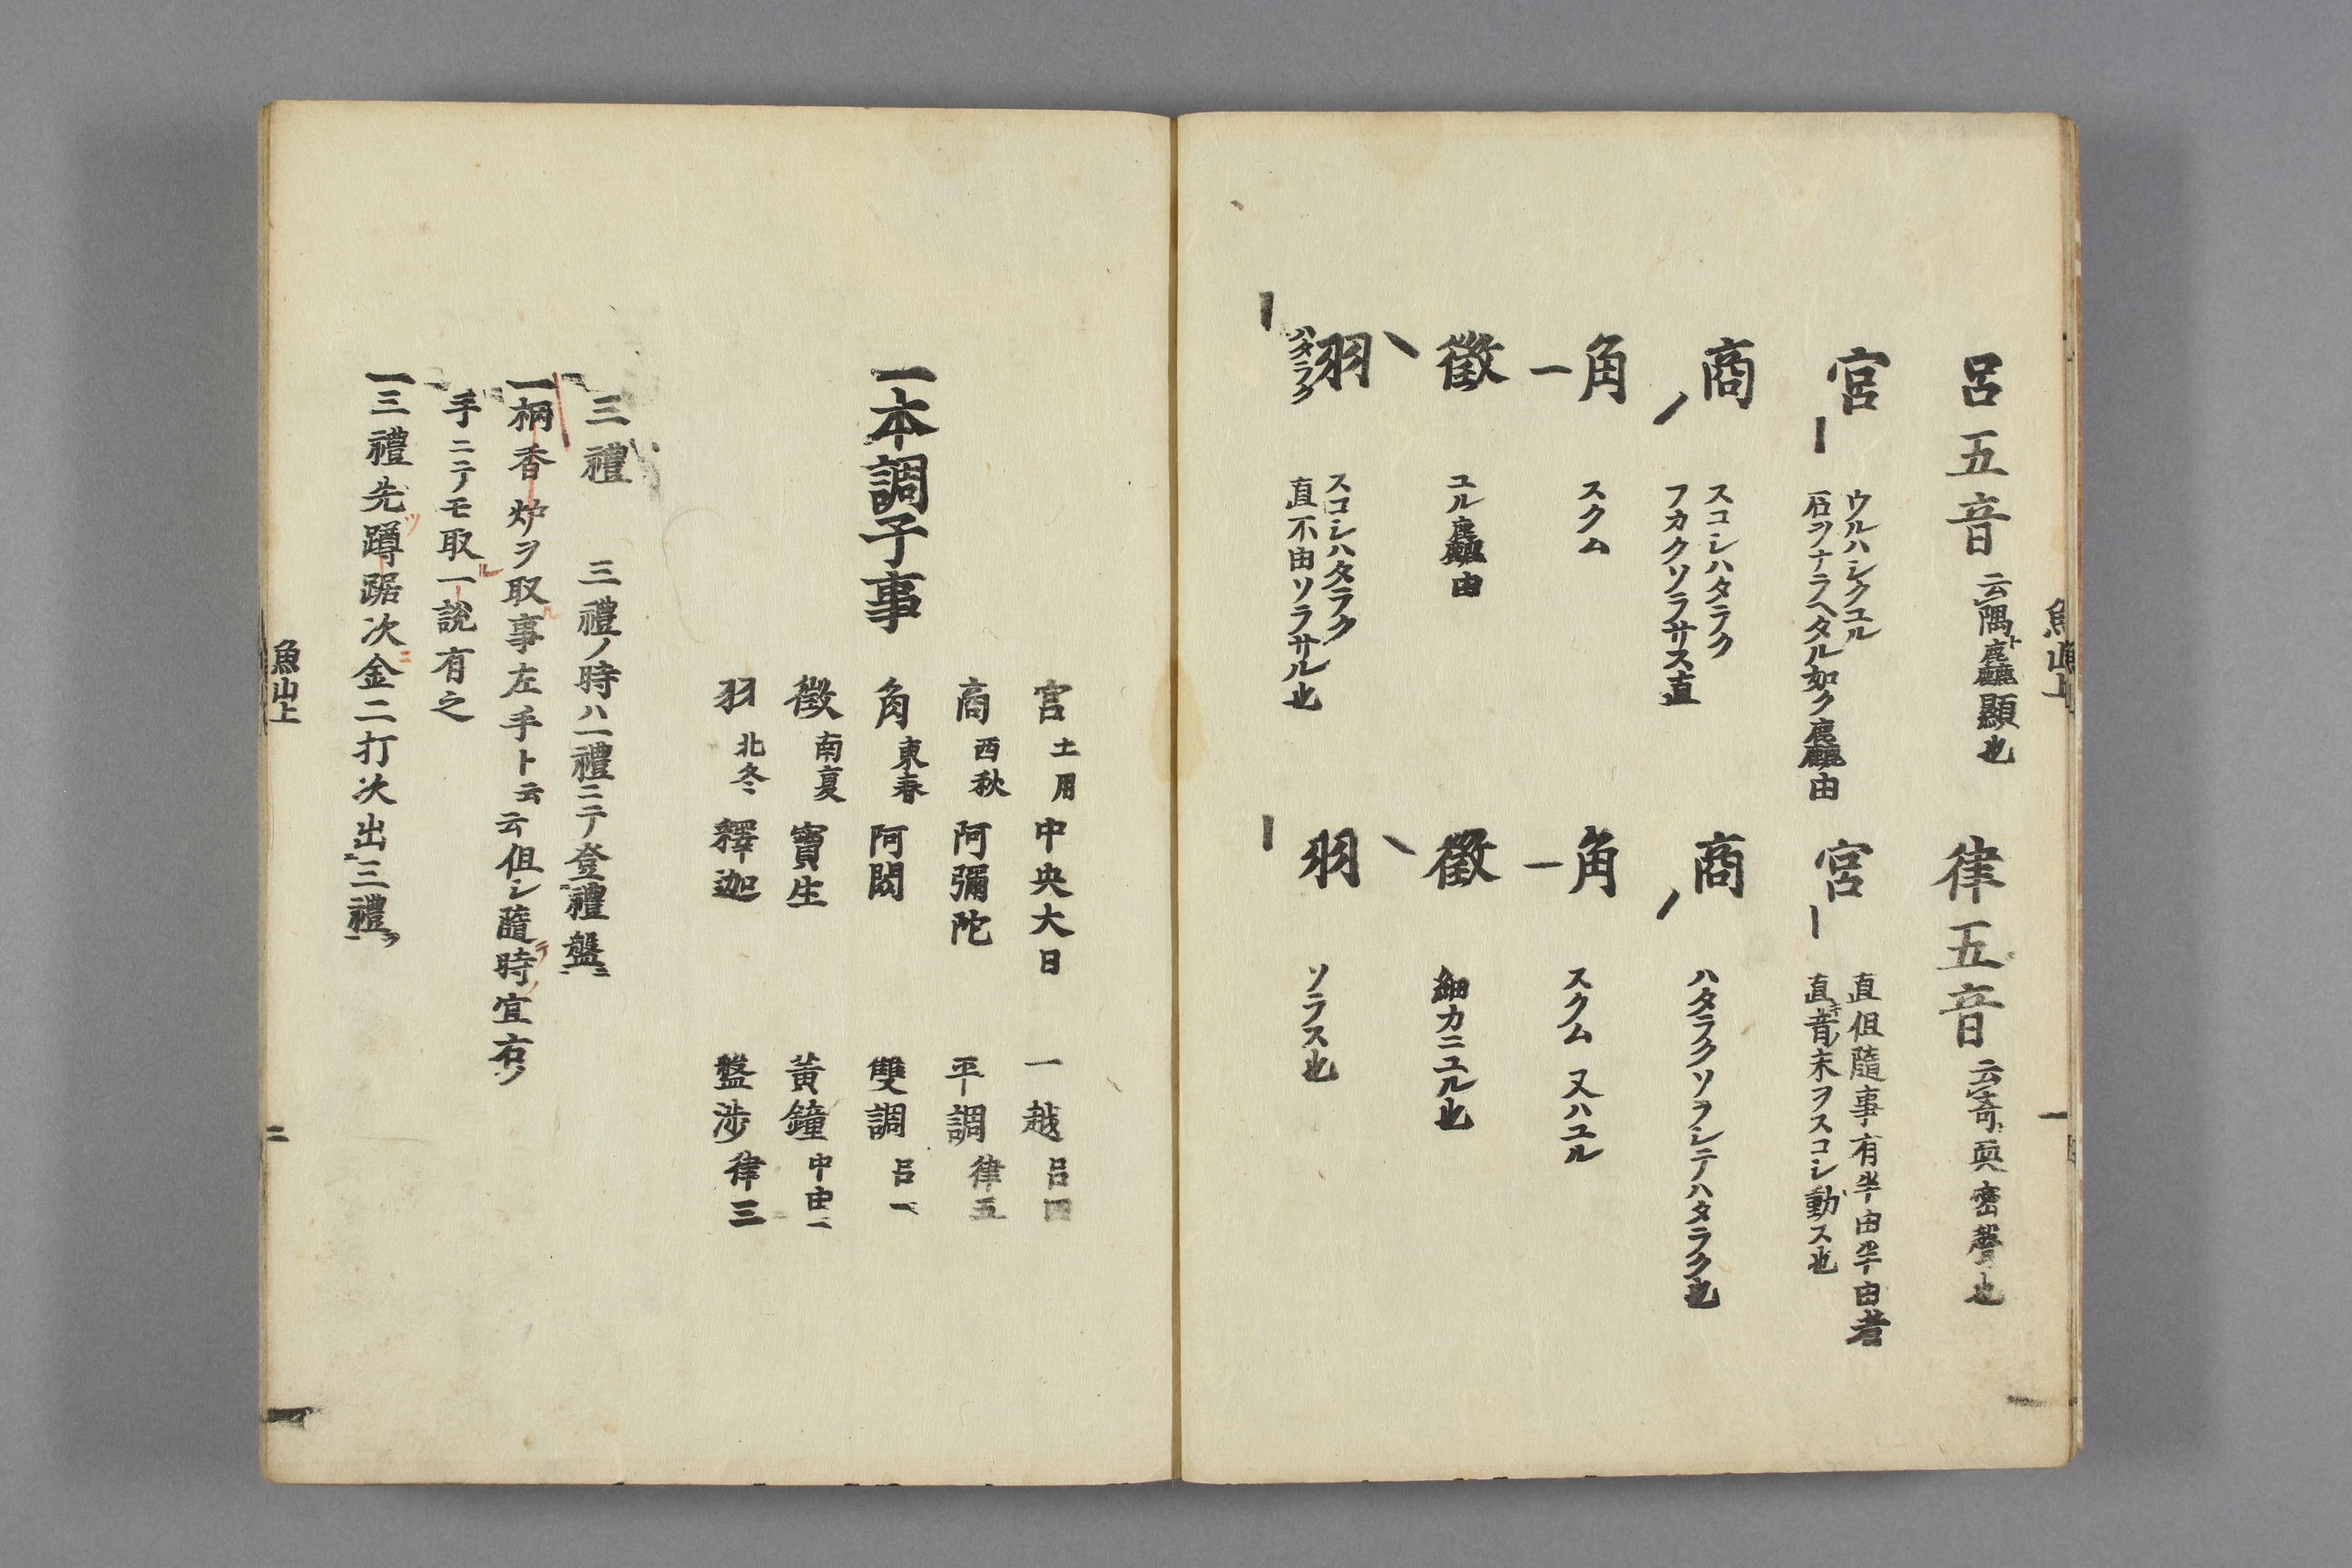 呂五音 云隅ト麤顯也
律五音 云奇眞密聲也
宮 ウルハシクユル
石ヲナラヘタル如ク麤由
宮 直但隨事有半由半由者
直音末ヲスコシ動ス也
商 スコシハタラク
フカクソラサス直
商 ハタラクソラシテハタラク也
角 スクム
角 スクム 又ハユル
徴 ユル麤由
徴 細カニユル也
羽 ハタラク スコシハタラク
直不由ソラサル也
羽 ソラス也
魚山上
一
一本調子事
宮 土用 中央大日 一越 呂四
商 西秋 阿彌陀 平調 律五
角 東春 阿閦 雙調 呂一
徴 南夏 寶生 黃鐘 中由一
羽 北冬 釋迦 盤渉 律三
三禮 三禮ノ時ハ一禮ニテ登禮盤ニ
一柄香炉ヲ取事左手ト云云但シ隨時宜右ノ
手ニテモ取ル一說有之
一三禮先ツ蹲踞次ニ金二打次出三禮ヲ
魚山上
二